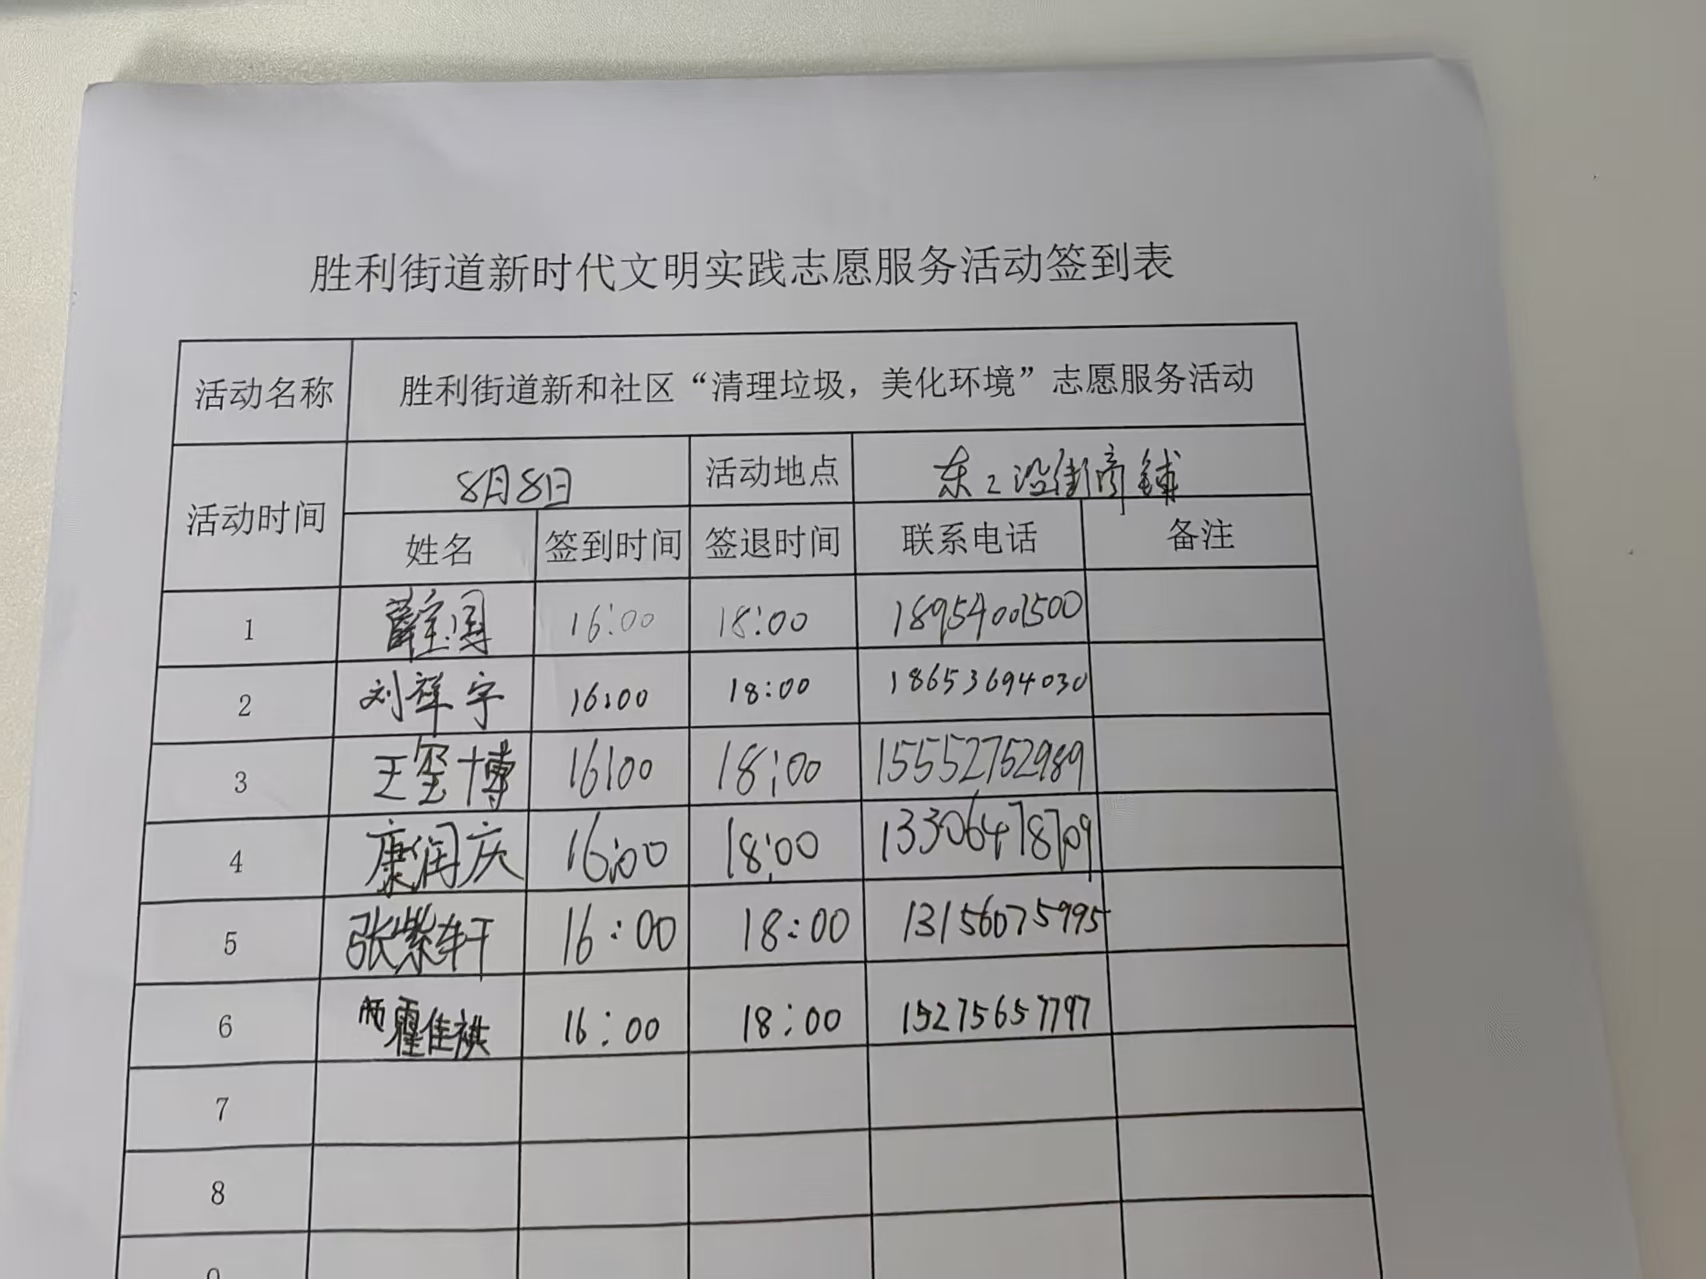 胜利街道新时代文明实践志愿服务活动签到表
活动名称 胜利街道新和社区“清理垃圾，美化环境”志愿服务活动
活动时间 8月8日 活动地点 东2沿街商铺
姓名 签到时间 签退时间 联系电话 备注
1 薛宝国 16:00 18:00 18954001500
2 刘祥宇 16:00 18:00 18653694030
3 王玺博 16:00 18:00 15552752989
4 康润庆 16:00 18:00 13306478709
5 张紫轩 16:00 18:00 13156075995
6 霍佳祺 16:00 18:00 15275657797
7
8
9